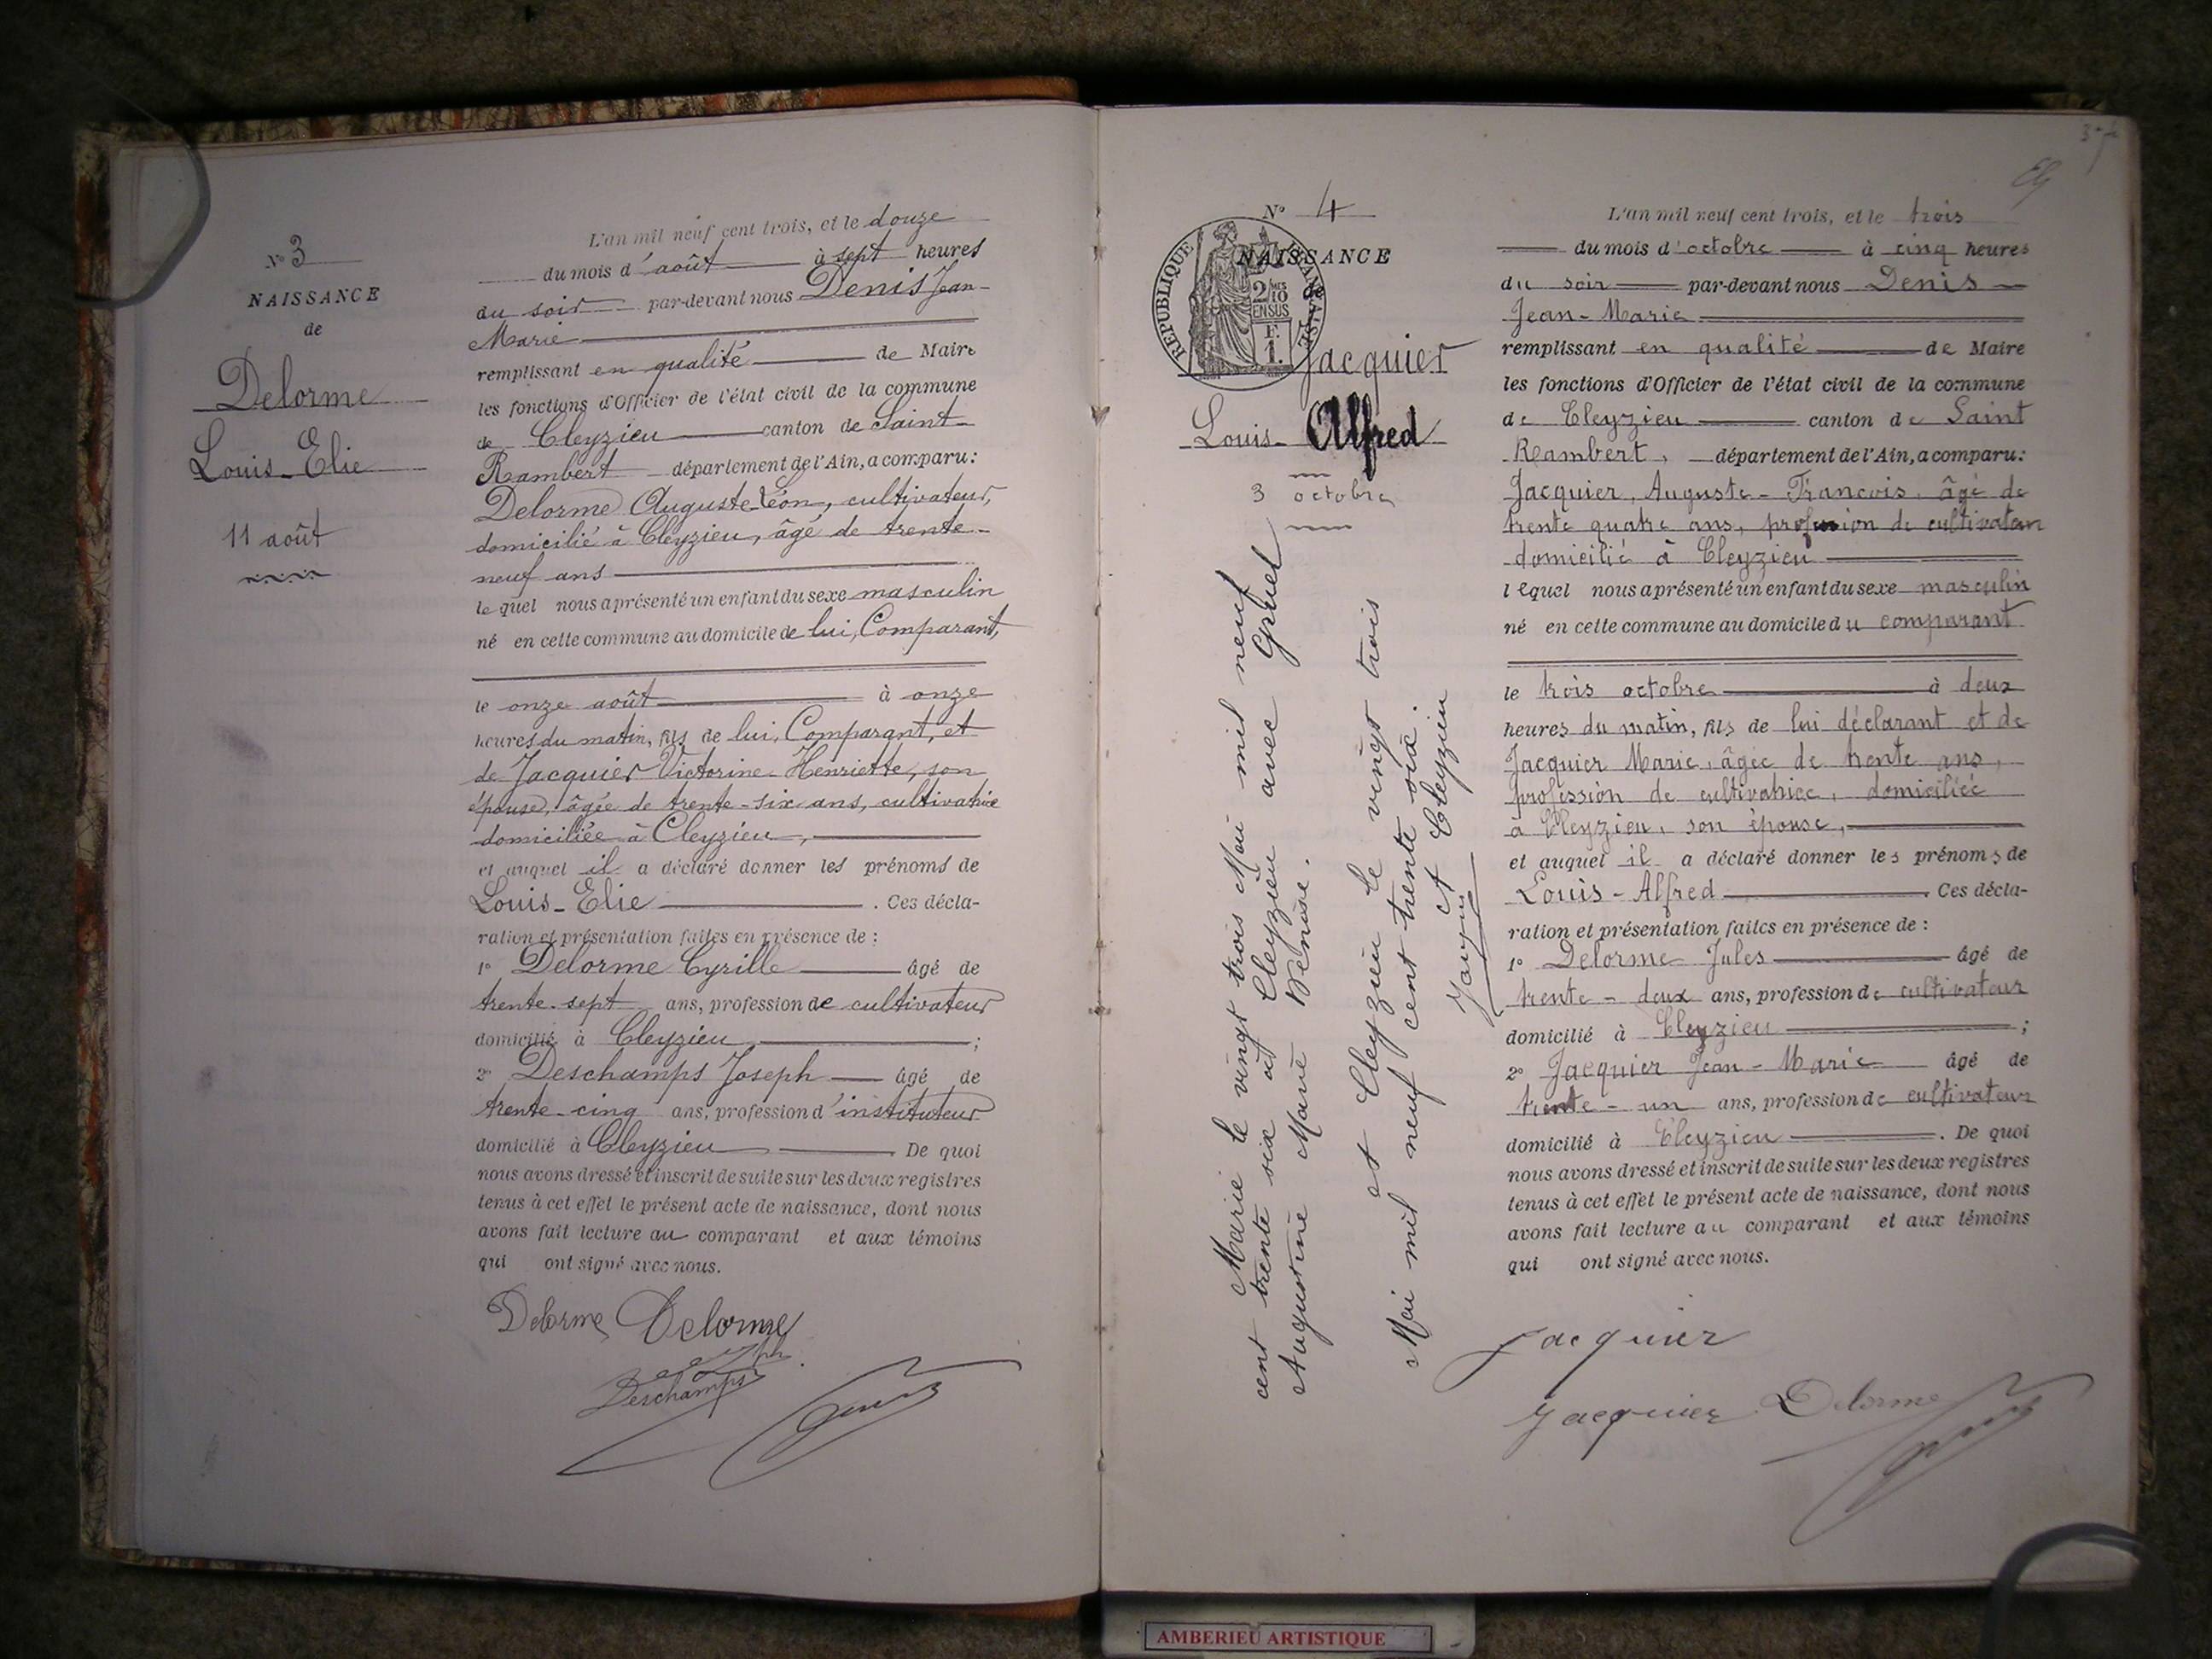 N° 3
NAISSANCE
de
Delorme
Louis-Elie
11 août
L'an mil neuf cent trois, et le douze
du mois d'août à sept heures
du soir par-devant nous Denis Jean-
Marie
remplissant en qualité de Maire
les fonctions d'Officier de l'état civil de la commune
de Cleyzieu canton de Saint-
Rambert département de l'Ain, a comparu:
Delorme Auguste-Léon, cultivateur,
domicilié à Cleyzieu, âgé de trente-
neuf ans
lequel nous a présenté un enfant du sexe masculin
né en cette commune au domicile de lui, Comparant,
le onze août à onze
heures du matin, fils de lui, Comparant, et
de Jacquier Victorine-Henriette, son
épouse, âgée de trente-six ans, cultivatrice
domiciliée à Cleyzieu,
et auquel il a déclaré donner les prénoms de
Louis-Elie. Ces décla-
ration et présentation faites en présence de :
1° Delorme Cyrille âgé de
trente-sept ans, profession de cultivateur
domicilié à Cleyzieu ;
2° Deschamps Joseph âgé de
trente-cinq ans, profession d'instituteur
domicilié à Cleyzieu. De quoi
nous avons dressé et inscrit de suite sur les deux registres
tenus à cet effet le présent acte de naissance, dont nous
avons fait lecture au comparant et aux témoins
qui ont signé avec nous.
Delorme Delorme
Joseph
Deschamps
Denis
3
N° 4
NAISSANCE
de
REPUBLIQUE FRANÇAISE
2/10 MES
EN SUS
F.
1.
Jacquier
Louis-Alfred
3 octobre
Marié le vingt trois Mai mil neuf
cent trente six à Cleyzieu avec Gruel
Augustine Marie Denise.
et Cleyzieu le vingt trois
Mai mil neuf cent trente six.
Cleyzieu
L'an mil neuf cent trois, et le trois
du mois d'octobre à cinq heures
du soir par-devant nous Denis
Jean-Marie
remplissant en qualité de Maire
les fonctions d'Officier de l'état civil de la commune
de Cleyzieu canton de Saint
Rambert, département de l'Ain, a comparu:
Jacquier, Auguste-François, âgé de
trente quatre ans, profession de cultivateur
domicilié à Cleyzieu
lequel nous a présenté un enfant du sexe masculin
né en cette commune au domicile du comparant
le trois octobre à deux
heures du matin, fils de lui déclarant et de
Jacquier Marie, âgée de trente ans,
profession de cultivatrice, domiciliée
à Cleyzieu, son épouse,
et auquel il a déclaré donner les prénoms de
Louis-Alfred. Ces décla-
ration et présentation faites en présence de :
1° Delorme Jules âgé de
trente-deux ans, profession de cultivateur
domicilié à Cleyzieu ;
2° Jacquier Jean-Marie âgé de
trente-un ans, profession de cultivateur
domicilié à Cleyzieu. De quoi
nous avons dressé et inscrit de suite sur les deux registres
tenus à cet effet le présent acte de naissance, dont nous
avons fait lecture au comparant et aux témoins
qui ont signé avec nous.
Jacquier
Jacquier Delorme
Denis
AMBERIEU ARTISTIQUE